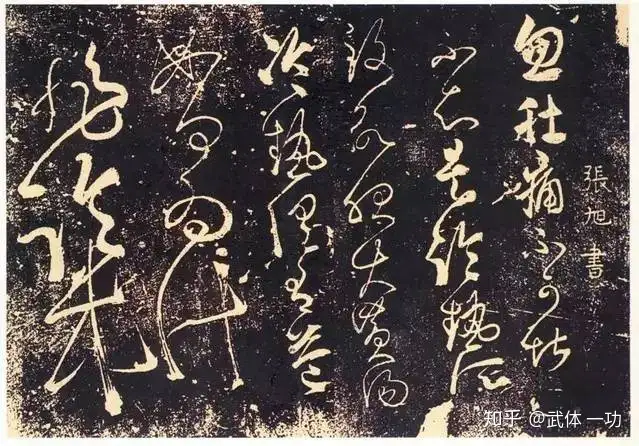 張旭書
忽肚痛不可堪
不知是冷熱所
致欲服大黃湯
冷熱俱有益
如何為計
非臨床
知乎 @武体一功